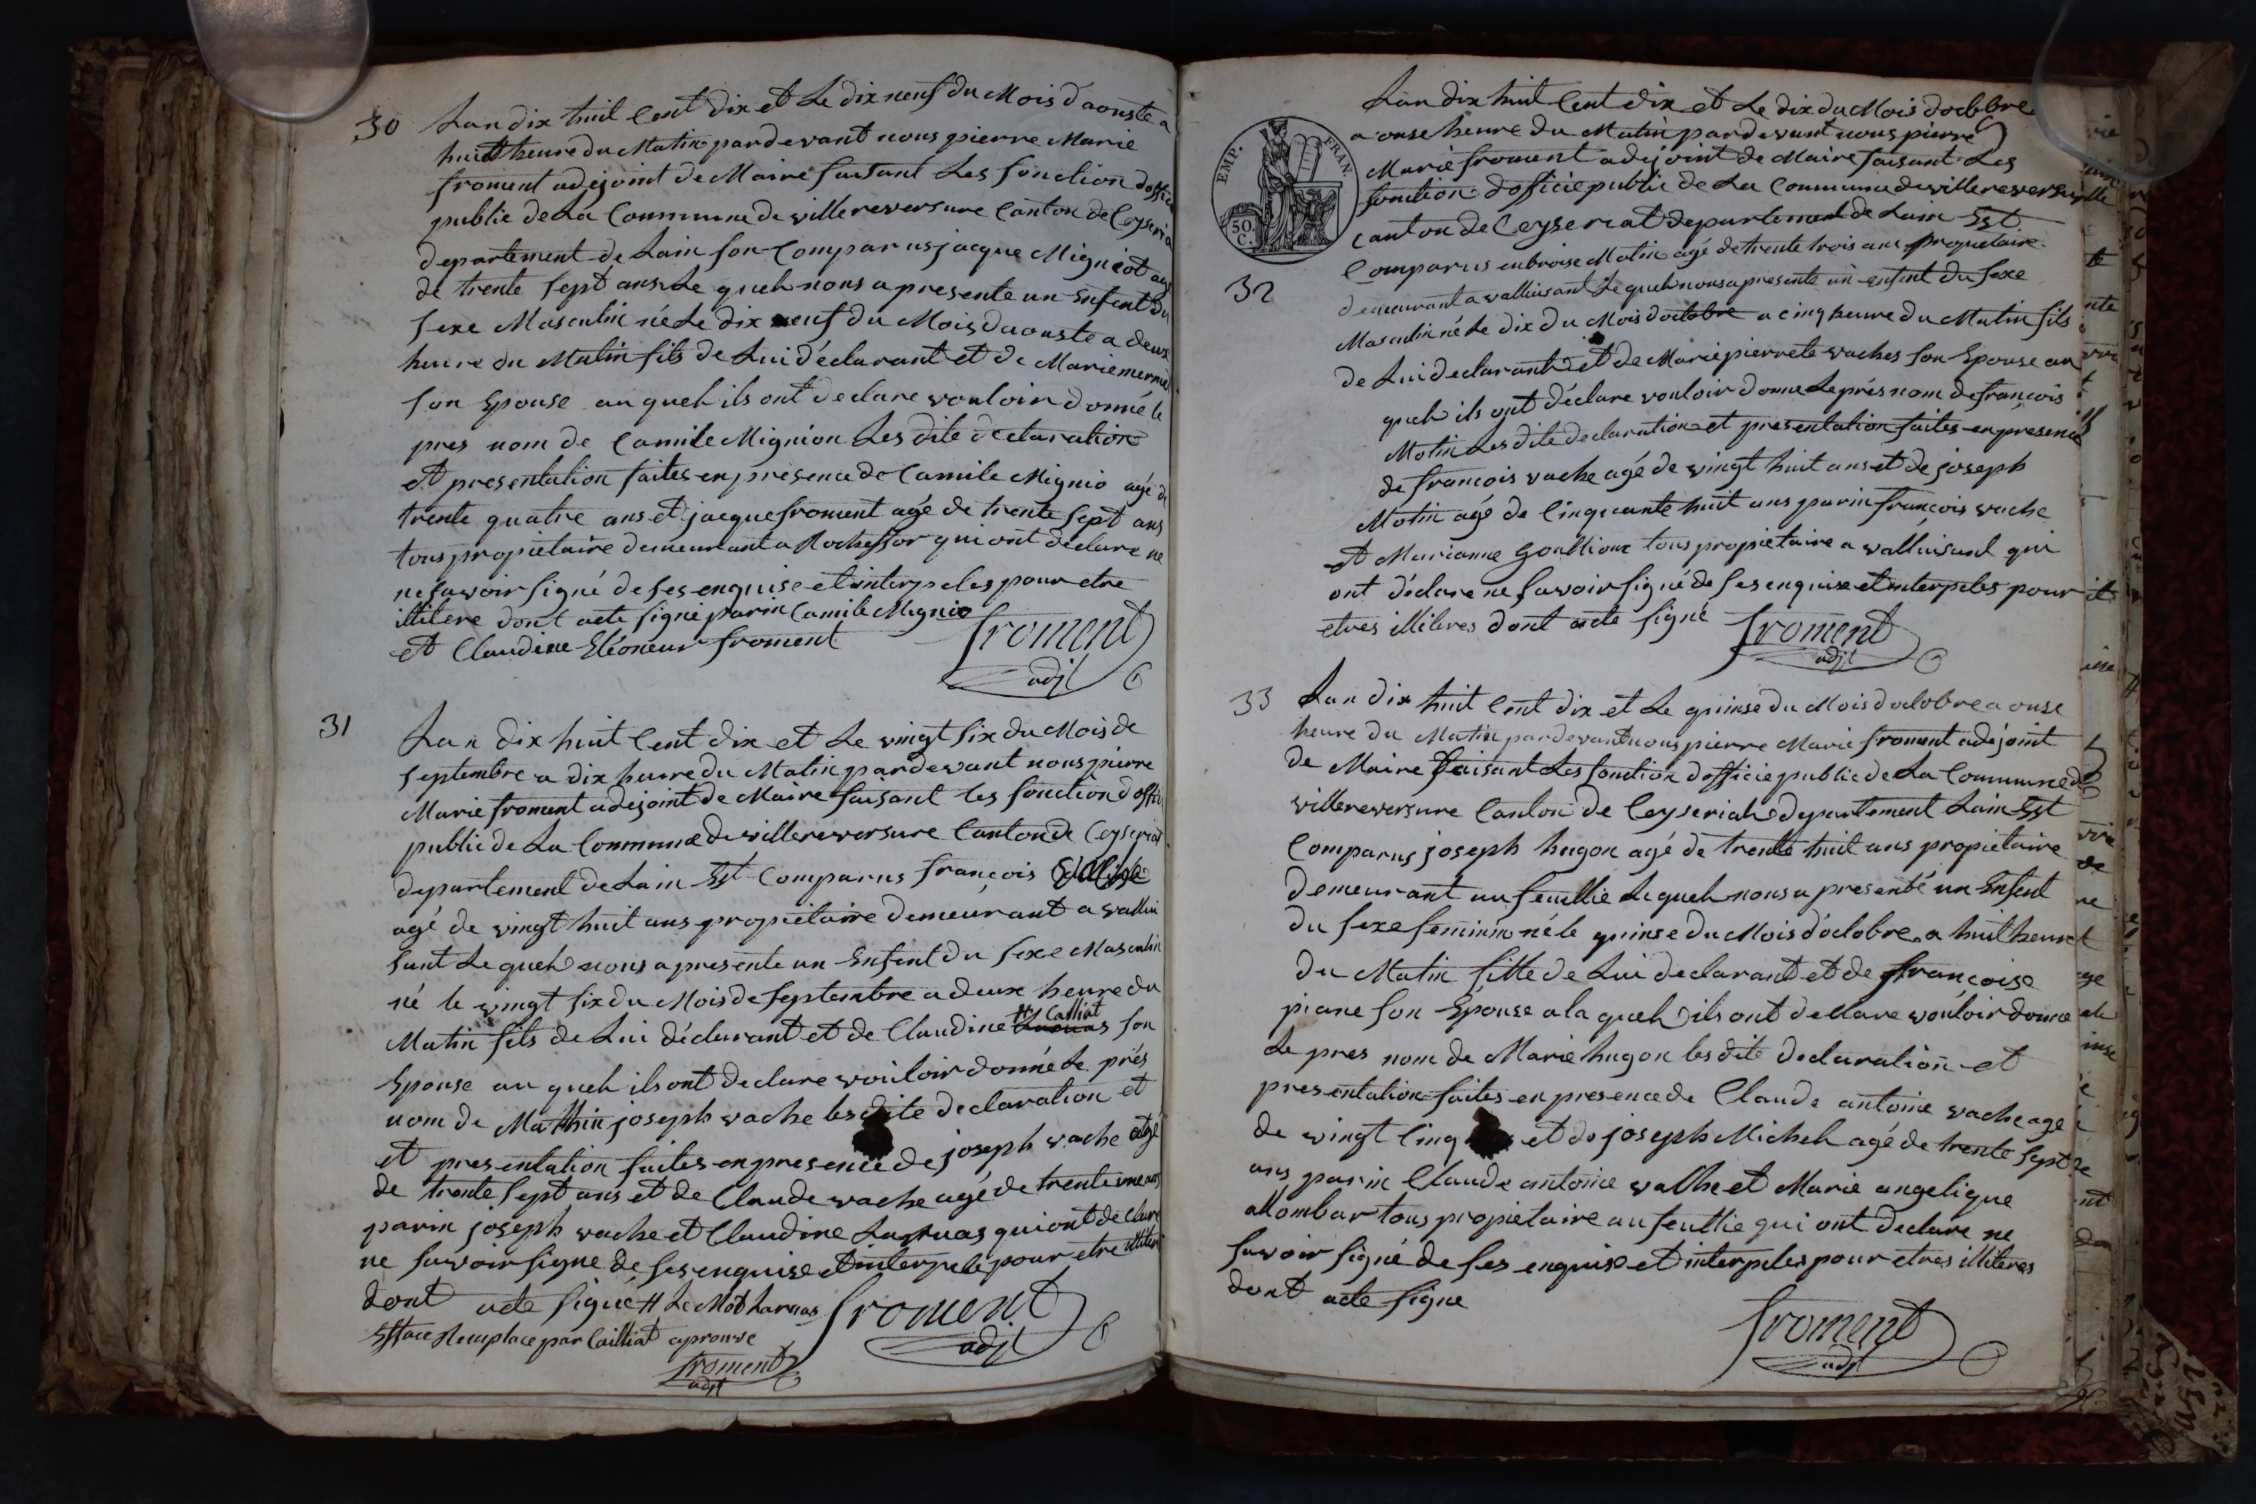 30
Lan dix huit Cent dix et Le dix neuf du Mois d'aouste a
huit heure du Matin pardevant nous pierre Marie
froment adejoint de Maire faisant Les fonction d'offici
public de La Commune de villereversure Canton de Ceyseria
departement de Lain son Comparus jacque Mignot agé
de trente sept ans Le queh nous a presente un Enfent du
sexe Masculin né Le dix neuf du Mois daouste a deux
heure du Matin fils de Lui déclarant et de Marie
son Epouse au queh ils ont declare vouloir donné le
pres nom de Camile Mignion Les dite declaration
et presentation faites en presence de Camile Mignio agé de
trente quatre ans et jacque froment agé de trente sept ans
tous propiétaire demeurant a Rochefor qui ont déclare ne
ne savoir signé de ses enquise et interpeles pour etre
illitere dont acte signé parin Camile Mignio
et Claudine Eléoneur froment
froment
adjt
31
Lan dix huit Cent dix et Le vingt six du Mois de
septembre a dix heure du Matin pardevant nous pierre
Marie froment adejoint de Maire faisant les fonction d'offici
public de La Commune de villereversure Canton de Ceyseriat
departement de Lain Est Comparus françois
agé de vingt huit ans propiétaire demeurant a valluí
sant Le queh nous a presente un Enfent du sexe Masculin
né le vingt six du Mois de septembre a deux heure du
# Calliat
Matin fils de Lui déclarant et de Claudine Laruas son
Epouse au queh ils ont declare vouloir donné Le prés
nom de Mathin joseph vache les dite declaration et
et presentation faites en presence de joseph vache agé
de trente sept ans et de Claude vache agé de trente une ans
parin joseph vache et Claudine Laruas qui ont declare
ne savoir signé de ses enquise et interpele pour etre illitere
dont acte signé # Le Mot Laruas
Efface Remplace par Cailliat aprouve
froment
adjt
froment
adjt
EMP. FRAN.
50. C.
Lan dix huit Cent dix et Le dix du Mois doctobre
a onse heure du Matin pardevant nous pierre
Marie froment adejoint de Maire faisant Les
fonction d'officie public de La Commune de villereversure
Canton de Ceyseriat departement de Lain Est
Comparus enbroise Motin agé de trente trois ans propiétaire
32
demeurant a valluisant Le queh nous a presente un enfent du sexe
Masculin né Le dix du Mois doctobre a cinq heure du Matin fils
de Lui declarant et de Marie pierrete vaches son Epouse au
queh ils ont déclare vouloir donne Le prés nom de francois
Motin Les dite declaration et presentation faites en présence
de francois vache agé de vingt huit ans et de joseph
Motin agé de Cinquante huit ans parin francois vache
et Marianne Goullioux tous propiétaire a valluisant qui
ont déclare ne savoir signé de ses enquise et interpeles pour
etres illiteres dont acte signé
froment
adjt
33
Lan dix huit Cent dix et Le quinse du Mois doctobre a onse
heure du Matin pardevant nous pierre Marie froment adejoint
de Maire faisant Les fonction d'officie public de La Commune de
villereversure Canton de Ceyseriah departement Lain Est
Comparus joseph hugon agé de trente huit ans propiétaire
demeurant au feuillie Le queh nous a presenté un Enfent
du sexe feminin né le quinse du Mois d'octobre a huit heure
du Matin fille de Lui declarant et de françoise
piane son Epouse a la queh ils ont declare vouloir donné
Le pres nom de Marie hugon les dite declaration et
presentation faites en presence de Claude antoine vache agé
de vingt Cinq et de joseph Micheh agé de trente sept
ans parin Claude antoine vache et Marie angelique
Mombar tous propiétaire au feuillie qui ont declare ne
savoir signé de ses enquise et interpeles pour etres illiteres
dont acte signe
froment
adjt